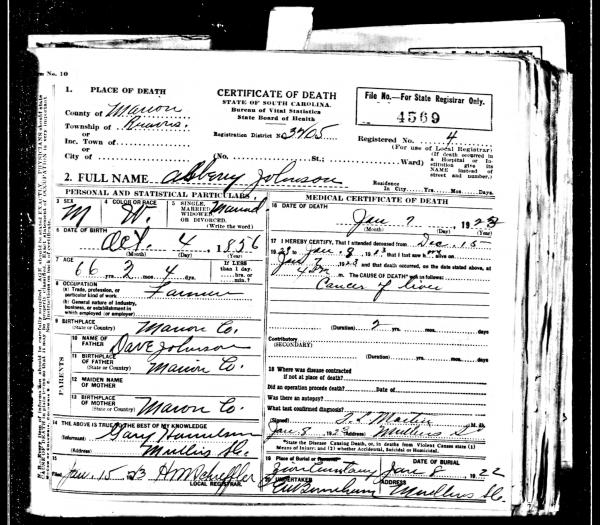 No. 10
1. PLACE OF DEATH
County of Marion
Township of
or
Inc. Town of
or
City of
CERTIFICATE OF DEATH
STATE OF SOUTH CAROLINA.
Bureau of Vital Statistics
State Board of Health
Registration District No. 3205
(No. St.; Ward)
File No.—For State Registrar Only.
4569
Registered No. 4
(For use of Local Registrar)
(If death occurred in a Hospital or Institution give its NAME instead of street and number.)
2. FULL NAME Asberry Johnson
Residence In City Yrs. Mos. Days.
PERSONAL AND STATISTICAL PARTICULARS
3 SEX M
4 COLOR OR RACE W.
5 SINGLE, MARRIED, WIDOWED OR DIVORCED. Married
(Write the word)
6 DATE OF BIRTH
Oct. 4, 1856
(Month) (Day) (Year)
7 AGE
66 yrs. 3 mos. 4 days
If LESS than 1 day, hrs. or min.
8 OCCUPATION
(a) Trade, profession, or particular kind of work Farmer
(b) General nature of industry, business, or establishment in which employed (or employer)
9 BIRTHPLACE
(State or Country) Marion Co.
PARENTS
10 NAME OF FATHER Dave Johnson
11 BIRTHPLACE OF FATHER
(State or Country) Marion Co.
12 MAIDEN NAME OF MOTHER
13 BIRTHPLACE OF MOTHER
(State or Country) Marion Co.
14 THE ABOVE IS TRUE TO THE BEST OF MY KNOWLEDGE
(Informant) Gary
(Address) Mullins S.C.
15
Filed Jan. 15 23
LOCAL REGISTRAR.
MEDICAL CERTIFICATE OF DEATH
16 DATE OF DEATH
Jan 7 1923
(Month) (Day) (Year)
17 I HEREBY CERTIFY, That I attended deceased from Dec. 15
Jan. 8 that I last saw alive on
Jan 7 1923 and that death occurred, on the date stated above, at
4 m. The CAUSE OF DEATH* was as follows:
Cancer of liver
(Duration) 2 yrs. mos. days
Contributory
(SECONDARY)
(Duration) yrs. mos. days
18 Where was disease contracted
if not at place of death?
Did an operation precede death? Date of
Was there an autopsy?
What test confirmed diagnosis?
(Signed) Martin M. D.
Jan. 8 1923 (Address) Mullins S.C.
*State the Disease Causing Death, or, in deaths from Violent Causes state (1) Means of Injury; and (2) whether Accidental, Suicidal or Homicidal.
19 Place of Burial or Removal DATE OF BURIAL
Zion Cemetary Jan. 8, 1922
20 UNDERTAKER ADDRESS
Mullins S.C.